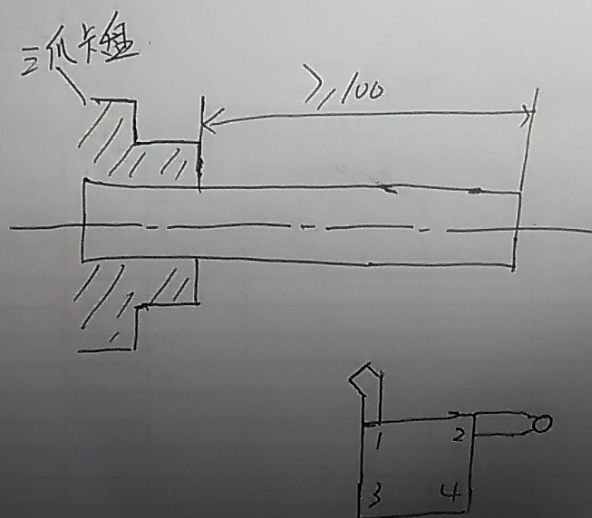 三爪卡盘
≥100
1 2
3 4